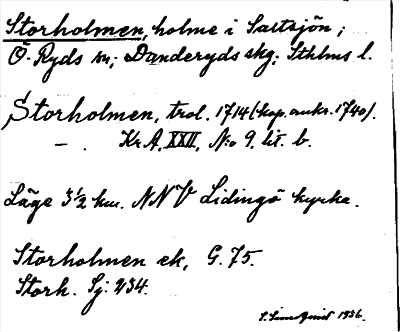 Storholmen, holme i Saltsjön;
Ö. Ryds sn; Danderyds skg; Sthlms l.
Storholmen, trol. 1714 (kop. omkr. 1740).
— . Kr A, XXII, No 9, lit. b.
Läge 3 1/2 km. NNV Lidingö kyrka.
Storholmen ek, G. 75.
Stork. Sj: 234.
1936.